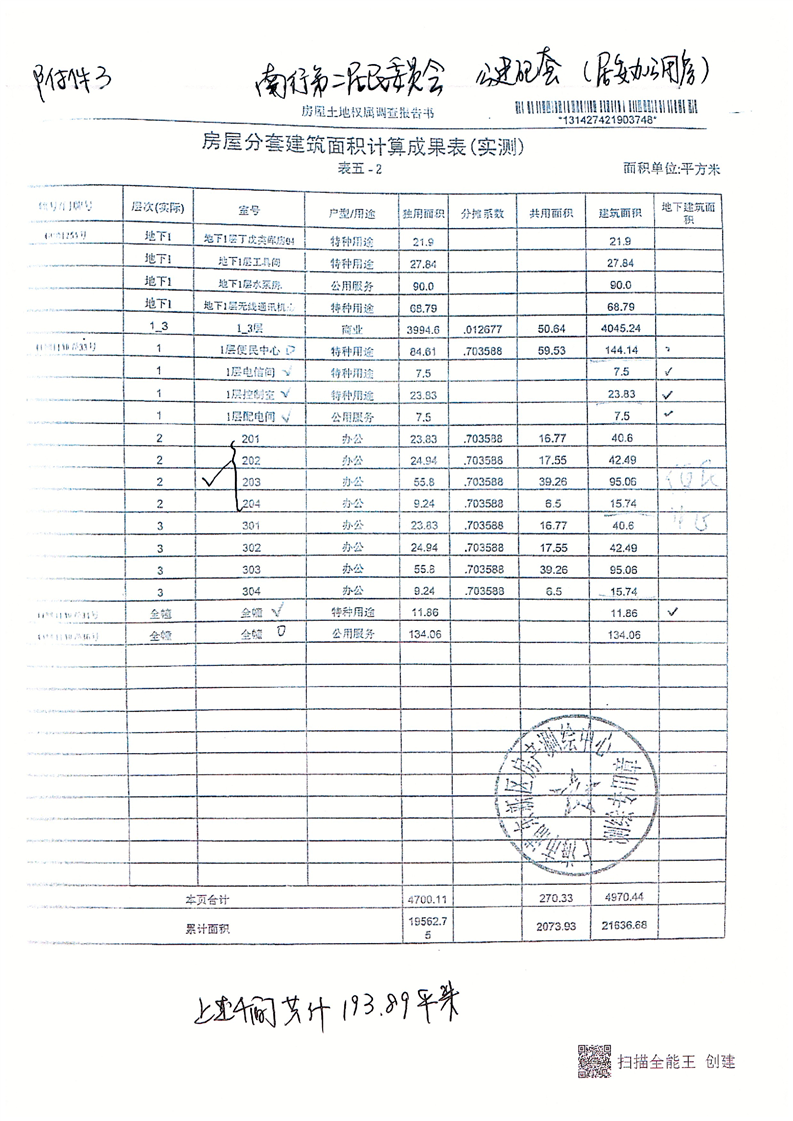 附件3 南行第二居民委员会 公建配套 (居委办公用房)
房屋土地权属调查报告书
*131427421903748*
房屋分套建筑面积计算成果表(实测)
表五-2 面积单位:平方米
层次(实际) 室号 户型/用途 独用面积 分摊系数 共用面积 建筑面积 地下建筑面积
地下1 特种用途 21.9 21.9
地下1 地下1层工具间 特种用途 27.84 27.84
地下1 地下1层水泵房 公用服务 90.0 90.0
地下1 地下1层无线通讯机 特种用途 68.79 68.79
1_3 1_3层 商业 3994.6 .012677 50.64 4045.24
1 1层便民中心 特种用途 84.61 .703588 59.53 144.14
1 1层电信间 ✓ 特种用途 7.5 7.5 ✓
1 1层控制室 ✓ 特种用途 23.83 23.83 ✓
1 1层配电间 ✓ 公用服务 7.5 7.5 ✓
2 201 办公 23.83 .703588 16.77 40.6
2 202 办公 24.94 .703588 17.55 42.49
2 203 办公 55.8 .703588 39.26 95.06
2 204 办公 9.24 .703588 6.5 15.74
3 301 办公 23.83 .703588 16.77 40.6
3 302 办公 24.94 .703588 17.55 42.49
3 303 办公 55.8 .703588 39.26 95.06
3 304 办公 9.24 .703588 6.5 15.74
全幢 全幢 ✓ 特种用途 11.86 11.86 ✓
全幢 全幢 公用服务 134.06 134.06
上海市浦东新区房产测绘中心
测绘专用章
本页合计 4700.11 270.33 4970.44
累计面积 19562.75 2073.93 21636.68
上述4间共计193.89平米
扫描全能王 创建